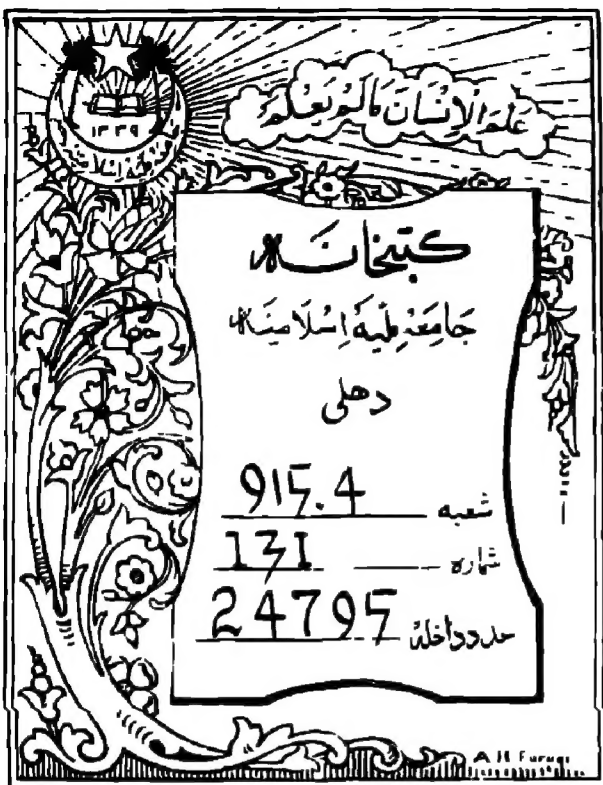 عَلَّمَ الْاِنْسَانَ مَا لَمْ يَعْلَمْ
۱۳۳۹
کتبخانہ
جَامِعَہ مِلّیَہ اِسْلَامِیَہ
دھلی
شعبہ 915.4
شمارہ 131
عدد داخلہ 24795
A H Faruqi